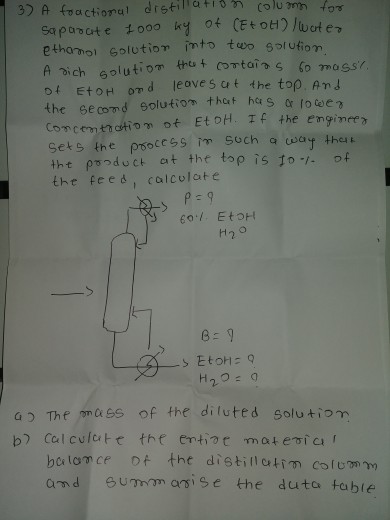 3) A fractional distillation column for
saparate 1000 kg of (EtOH)/water
ethanol solution into two solution.
A rich solution that contains 60 mass%
of EtOH and leaves at the top. And
the second solution that has a lower
concentration of EtOH. If the engineer
sets the process in such a way that
the product at the top is 10% of
the feed, calculate
P = ?
60% EtOH
H2O
B = ?
EtOH = ?
H2O = ?
a) The mass of the diluted solution
b) Calculate the entire material
balance of the distillatin column
and summarise the data table